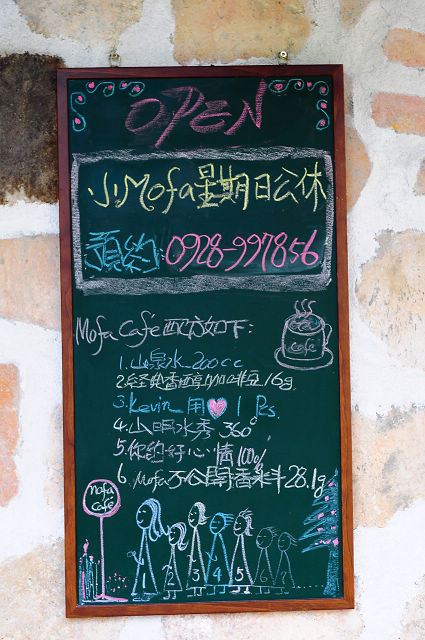 OPEN
小Mofa星期日公休
預約:0928-997856
Mofa Café配方如下:
1.山泉水_200cc
2.經典香醇咖啡豆16g
3.Kevin_用♥ 1 Ps.
4.山明水秀 360°
5.你的好心情100%
6.Mofa不公開香料28.1g
cafe
mofa
café
1 2 3 4 5 6 7